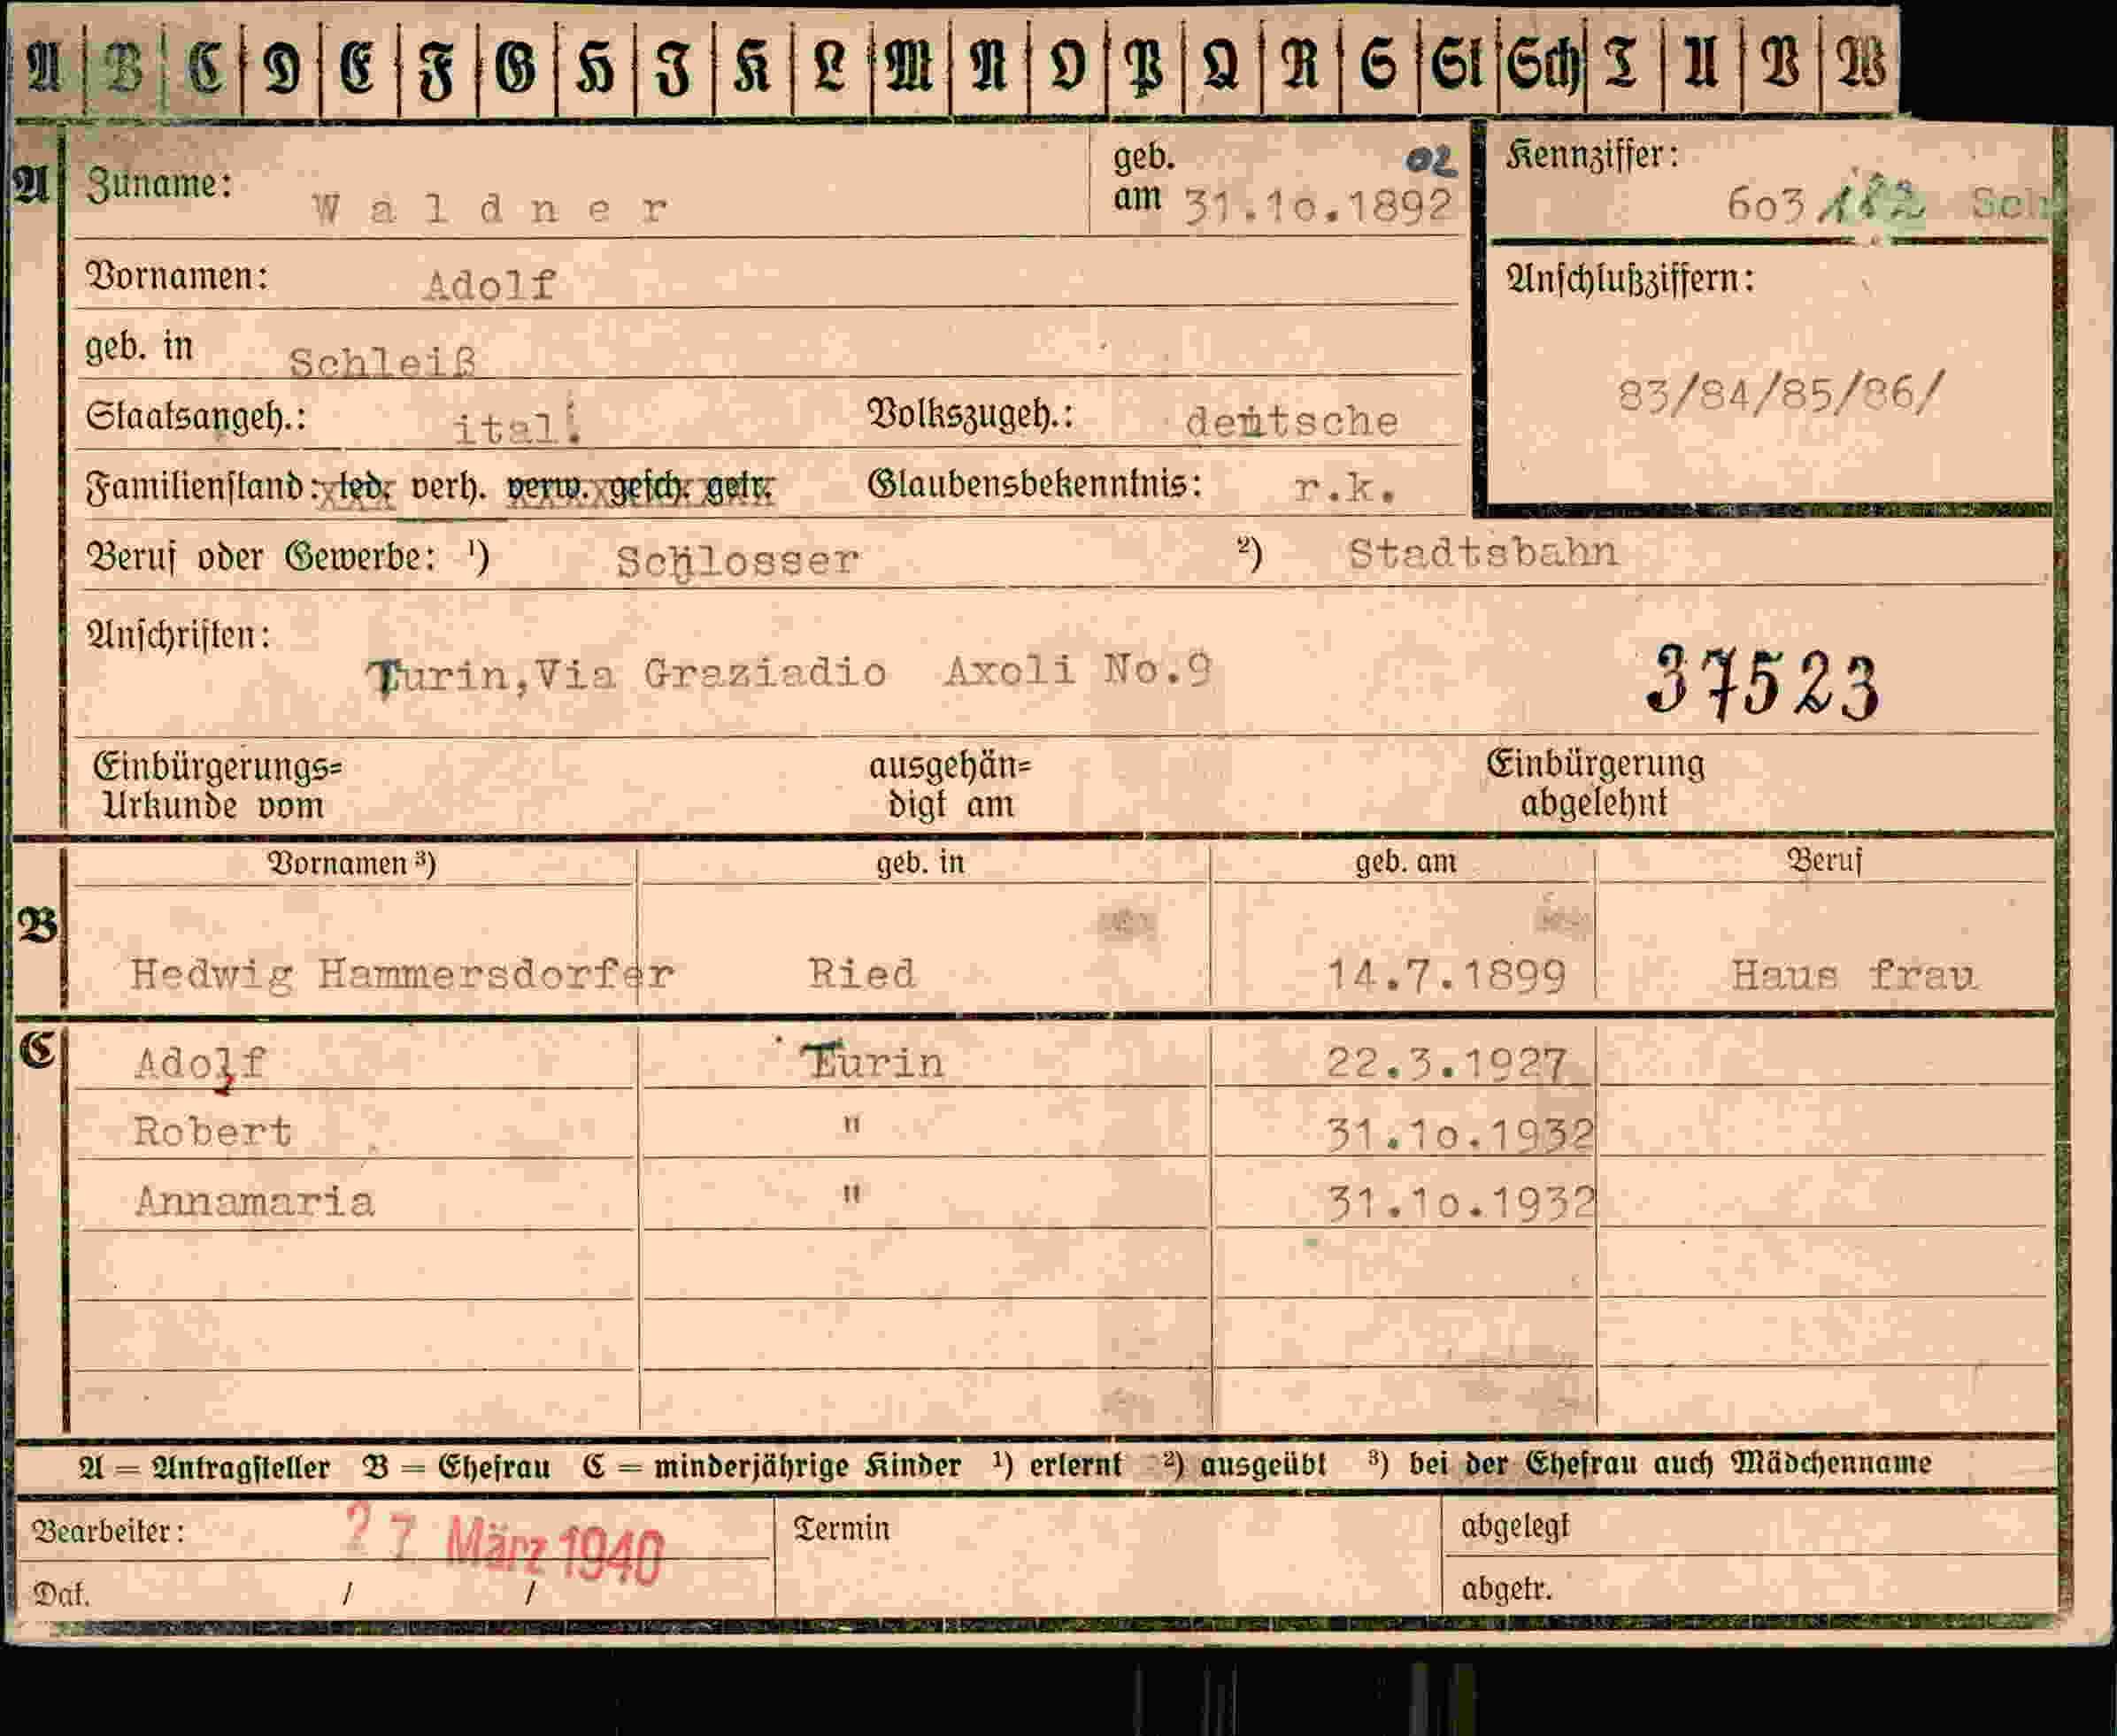 A B C D E F G H I K L M N O P Q R S St Sch T U V W
A Zuname: Waldner geb. am 31.10.1892 02 Kennziffer: 603 182 Sch
Vornamen: Adolf Anschlußziffern:
geb. in Schleiß 83/84/85/86/
Staatsangeh.: ital. Volkszugeh.: deutsche
Familienstand: led. verh. verw. gesch. getr. Glaubensbekenntnis: r.k.
Beruf oder Gewerbe: ¹) Schlosser ²) Stadtsbahn
Anschriften: Turin,Via Graziadio Axoli No.9 37523
Einbürgerungs= ausgehän= Einbürgerung
Urkunde vom digt am abgelehnt
Vornamen ³) geb. in geb. am Beruf
B Hedwig Hammersdorfer Ried 14.7.1899 Haus frau
C Adolf Turin 22.3.1927
Robert " 31.10.1932
Annamaria " 31.10.1932
A = Antragsteller B = Ehefrau C = minderjährige Kinder ¹) erlernt ²) ausgeübt ³) bei der Ehefrau auch Mädchenname
Bearbeiter: 27 März 1940 Termin abgelegt
Dat. / / abgetr.